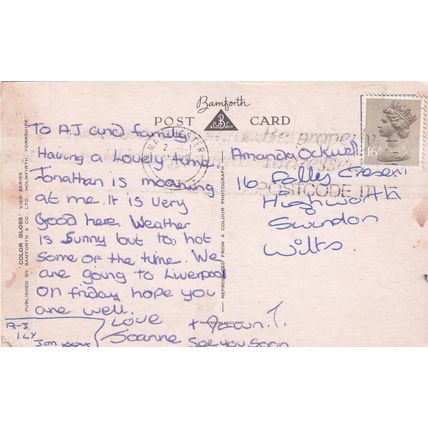 Bamforth
POST CARD
To A.J and family
Having a Lovely time.
Jonathan is moaning
at me. It is very
Good here. Weather
is Sunny but to hot
some of the time. We
are going to Liverpool
on friday hope you
are well.
Love
Joanne
See you soon
A-J
ILY
Jon xxxx
"COLOR GLOSS" VIEW SERIES
PUBLISHED BY BAMFORTH & CO. LTD., HOLMFIRTH, YORKSHIRE
REPRODUCED FROM A COLOUR PHOTOGRAPH
PRINTED IN HOLLAND
Amanda Ockwell
16
Highworth
Swindon
Wilts.
16P
Be properly
addressed
POSTCODE IT